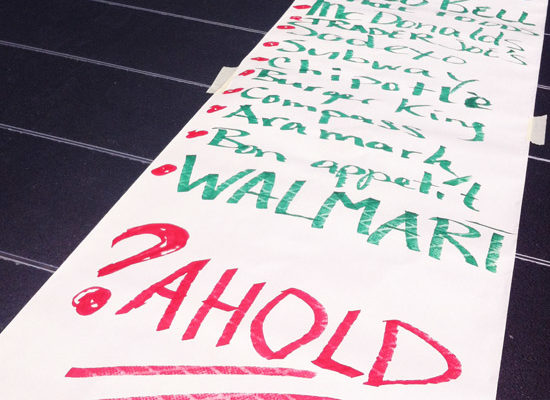 BELL
McDonald's
TRADER JOE'S
Sodexo
Subway
Chipotle
Burger King
Compass
Aramark
Bon appetit
WALMART
? AHOLD